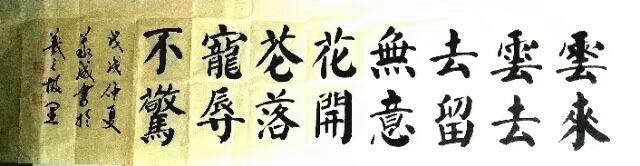 雲來
雲去
去留
無意
花開
花落
寵辱
不驚
戊戌仲夏
成書於
之故里